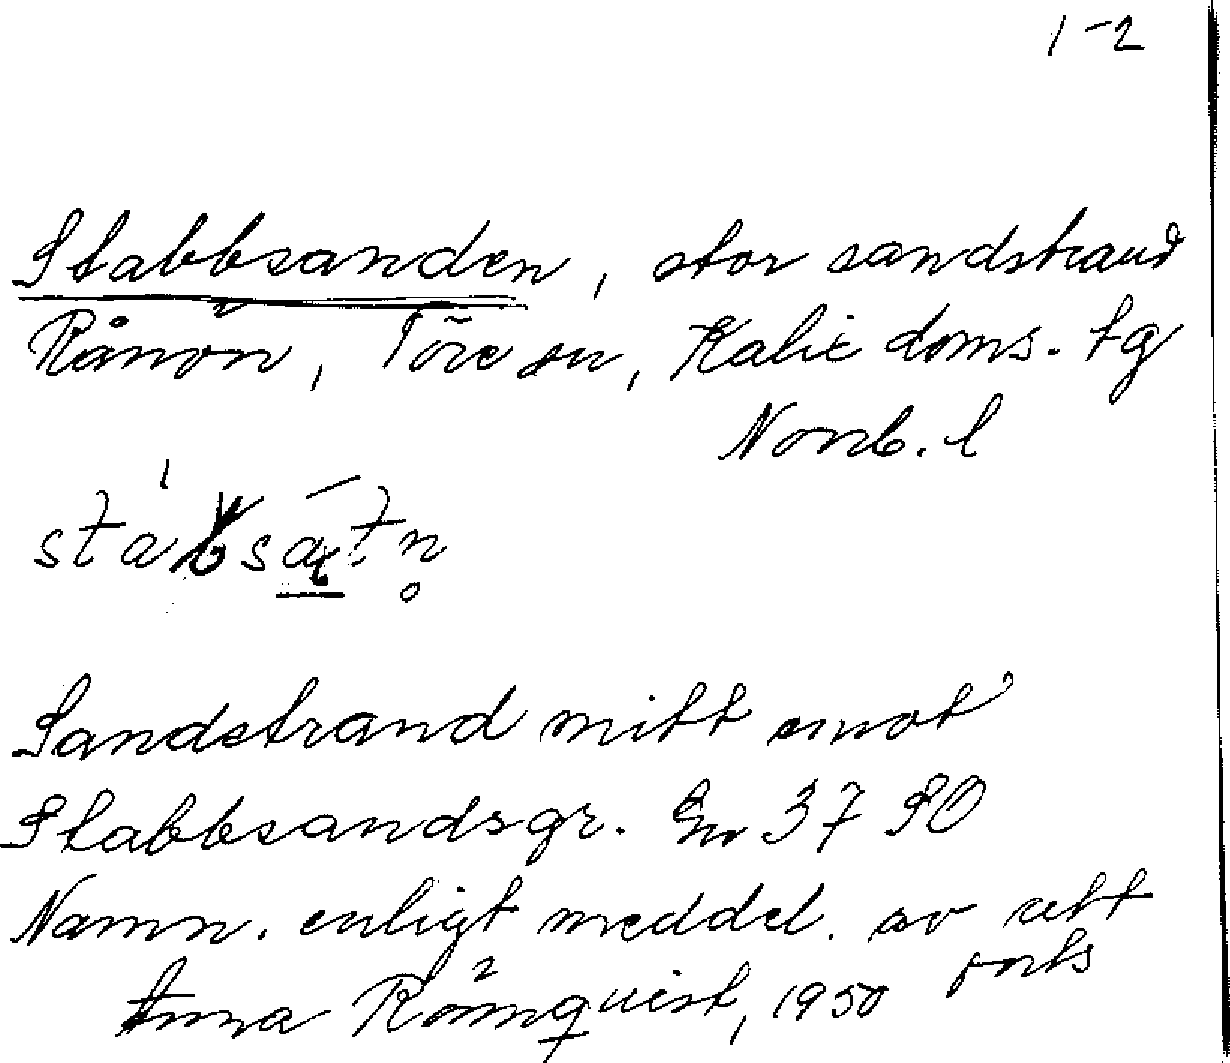 1-2
Stabbsanden, stor sandstrand
Rånön, Töre sn, Kalix doms. tg
Norrb. l
Sandstrand mitt emot
Stabbsandsgr. En 37 SO
Namn. enligt meddel. av sett
forts
Anna Rönnquist, 1950